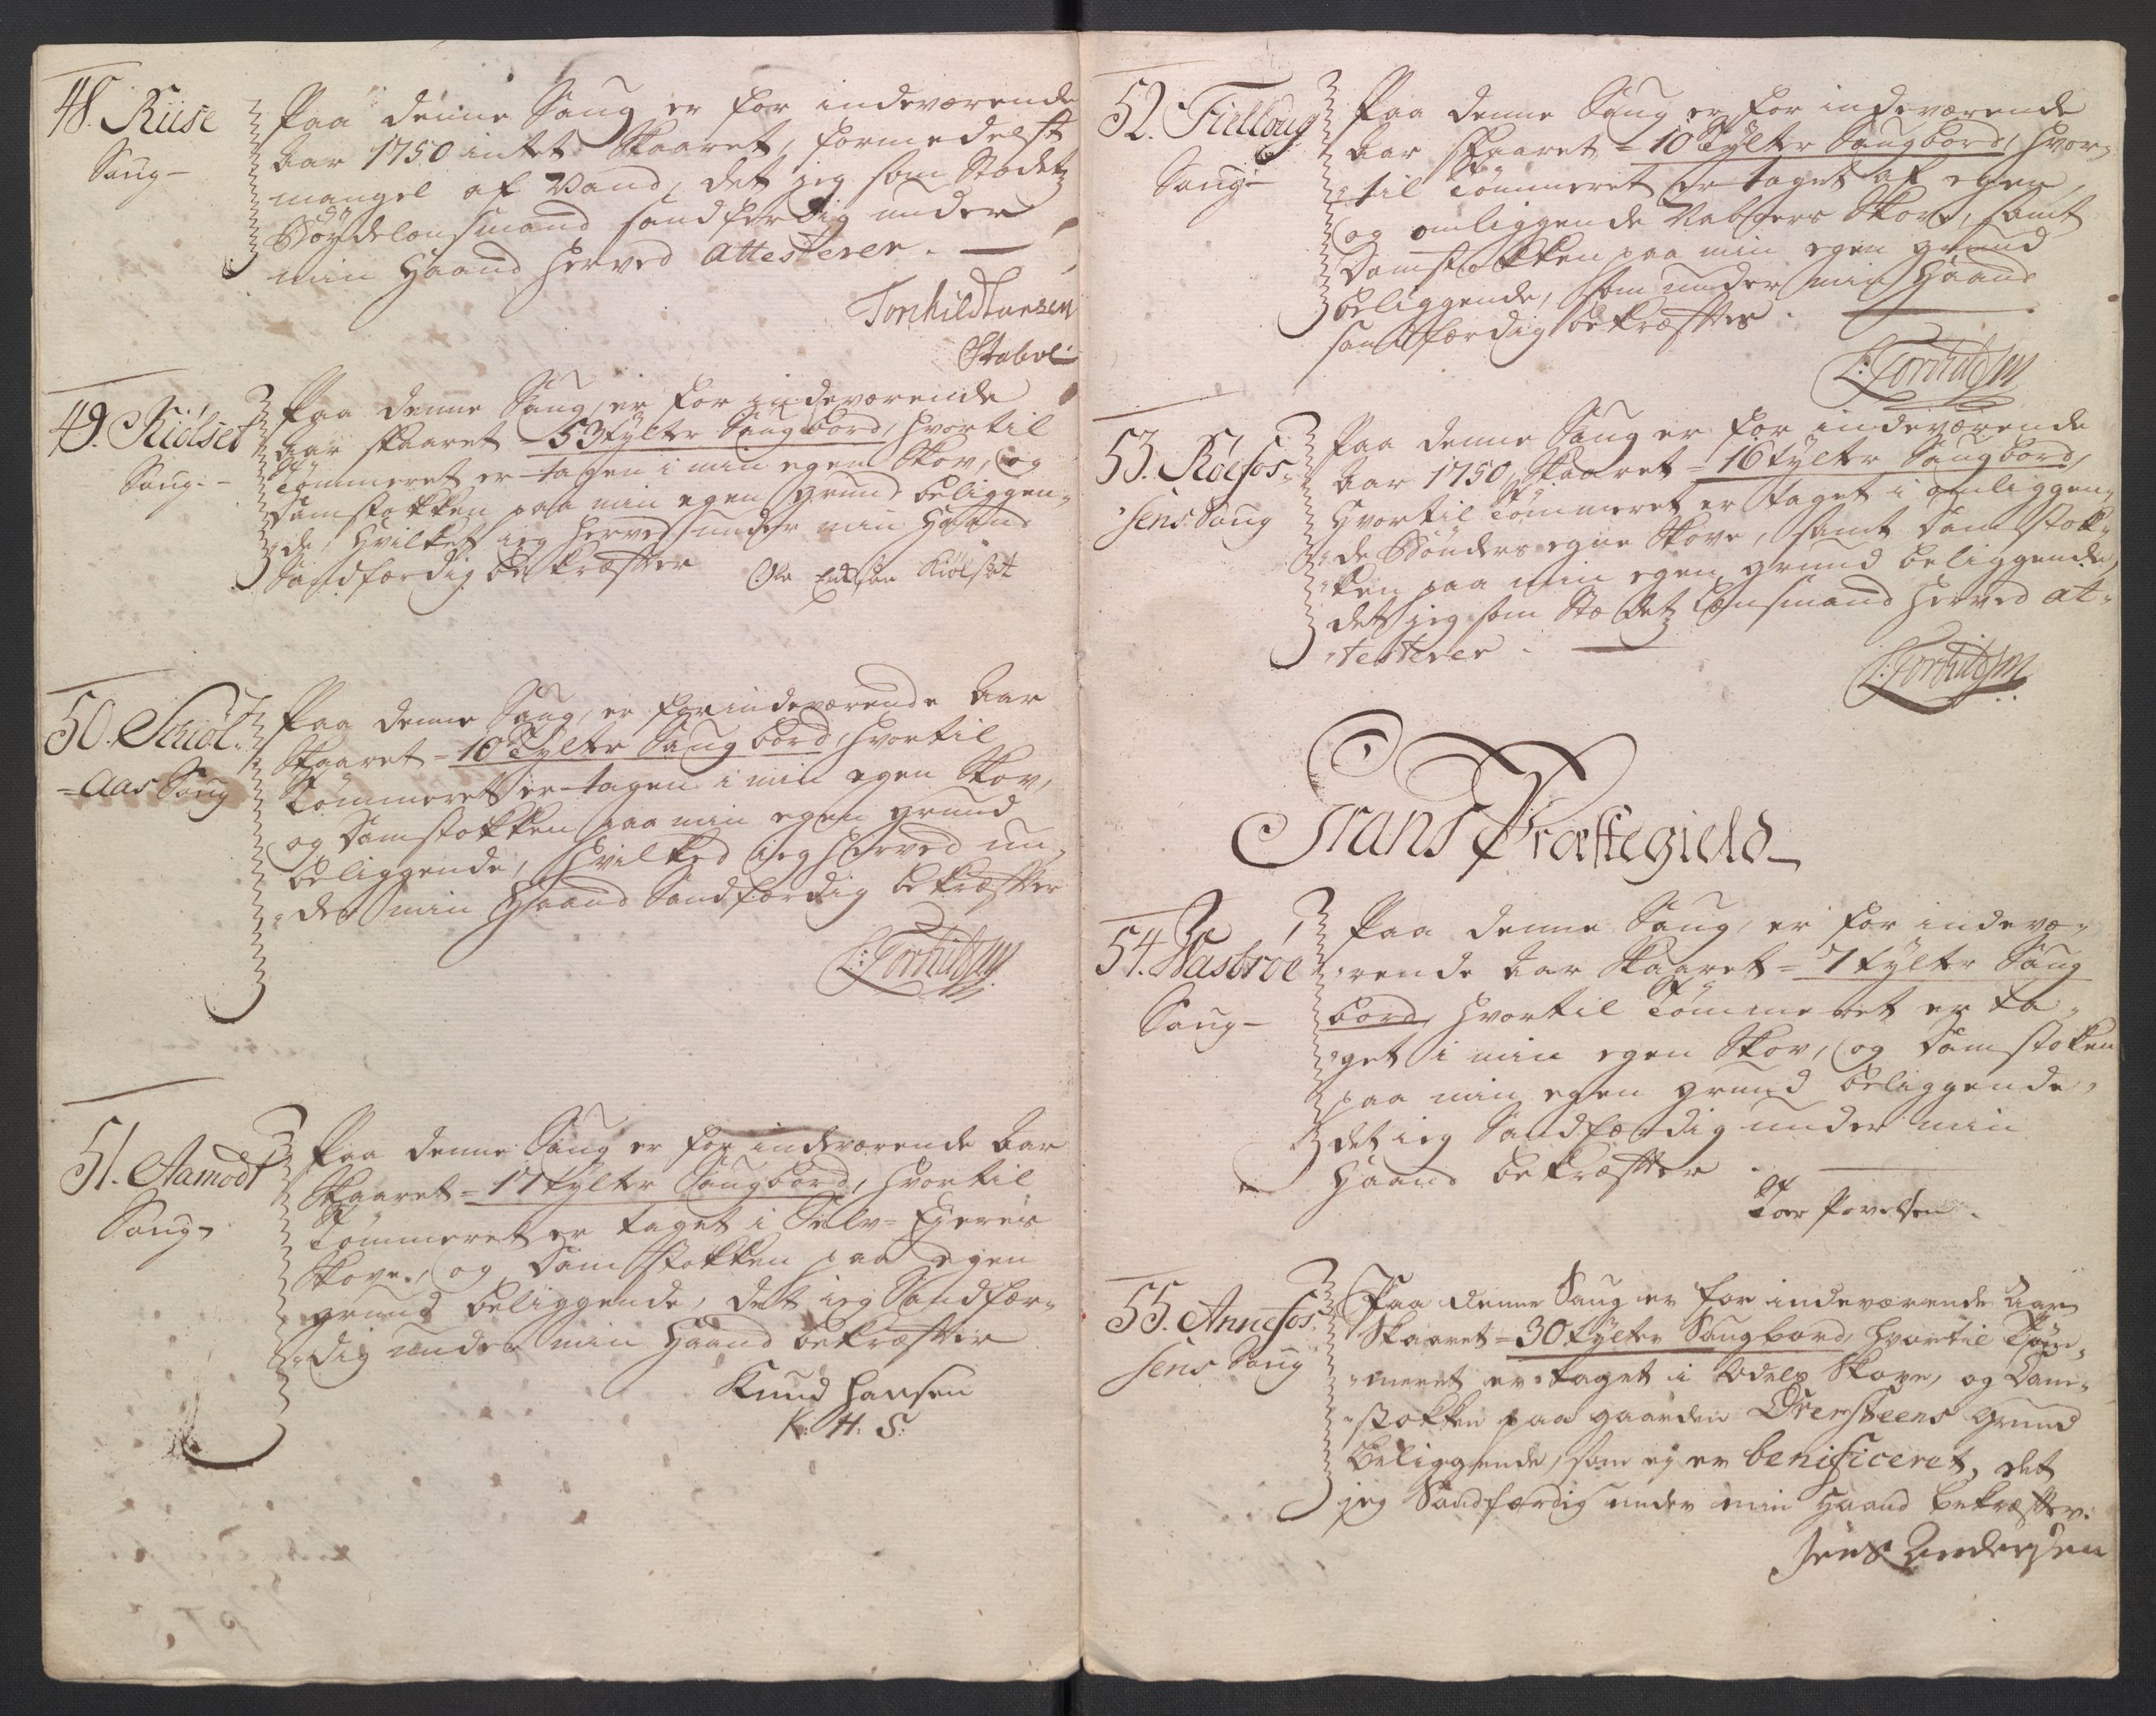 48. Riise
Saug-
Paa denne Saug er for indeværende
Aar 1750 intet Skaaret, formedelst
mangel af Vand, det jeg som Stædetz
Bøydelensmand sandferdig under
min Haand herved attesterer.
Torkild Hansen
Stabel
49. Kiølset
Saug.-
Paa denne Saug, er for indeværende
Aar skaaret = 53 tylter Saugbord, hvortil
Tømmeret er tagen i min egen Skov, og
Damstokken paa min egen grund beliggen-
de, hvilket ieg herved under min Haand
Sandfærdig bekræfter
Ole Kiølset
50. Schiøl-
=Aas Saug
Paa denne Saug, er for indeværende Aar
Skaaret = 10 Tylter Saugbord, hvortil
Tømmeret er tagen i min egen Skov,
og Damstokken paa min egen grund
beliggende, hvilked ieg herved un-
der min Haand Sandfærdig bekræfter
L: Torkildsen
51. Aamodt
Saug-
Paa denne Saug er for indeværende Aar
Skaaret = 17 tylter Saugbord, hvortil
Tømmeret er taget i Selv=Ejernis
Skove, og Damstokken paa egen
grund beliggende, det ieg Sandfær-
dig under min Haand bekræfter
Knud Hansen
K: H: S:
52. Fielloug
Saug-
Paa denne Saug er for indeværende
Aar skaaret = 10 Tylter Saugbord, hvor-
til Tømmeret er taget af egen,
og omliggende Naboers Skove, samt
Damstokken paa min egen grund
beliggende, som under min Haand
sandfærdig bekræftes.
L: Torkildsen
53. Røefos-
sens Saug
Paa denne Saug er for indeværende
Aar 1750, Skaaret = 16 tylter Saugbord,
Hvortil Tømmeret er taget i omliggen-
de Bønders egne Skove, samt Damstok-
ken paa min egen grund beliggende,
det jeg som Stædetz Lensmand herved at-
testerer.
L: Torkildsen
Grans Præstegield
54. Næsbroe
Saug-
Paa denne Saug, er for indevæ-
rende Aar Skaaret = 7 tylter Saug
bord, hvortil Tømmeret er ta-
get i min egen Skov, og Damstoken
paa min egen grund beliggende,
det ieg Sandfærdig under min
Haand bekræfter
Toer Povelsen
55. Annefos-
sens Saug
Paa denne Saug er for indeværende Aar
Skaaret = 30 tylter Saugbord, hvortil Tøm-
meret er taget i Odels Skove, og Dam-
stokken paa gaarden Ørensteens Grund
Beliggende, som ej er benificeret, det
jeg Sandfærdig under min Haand bekræfter.
Jens Andersen